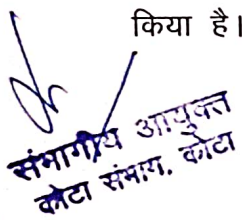 किया है।
संभागीय आयुक्त
कोटा संभाग, कोटा